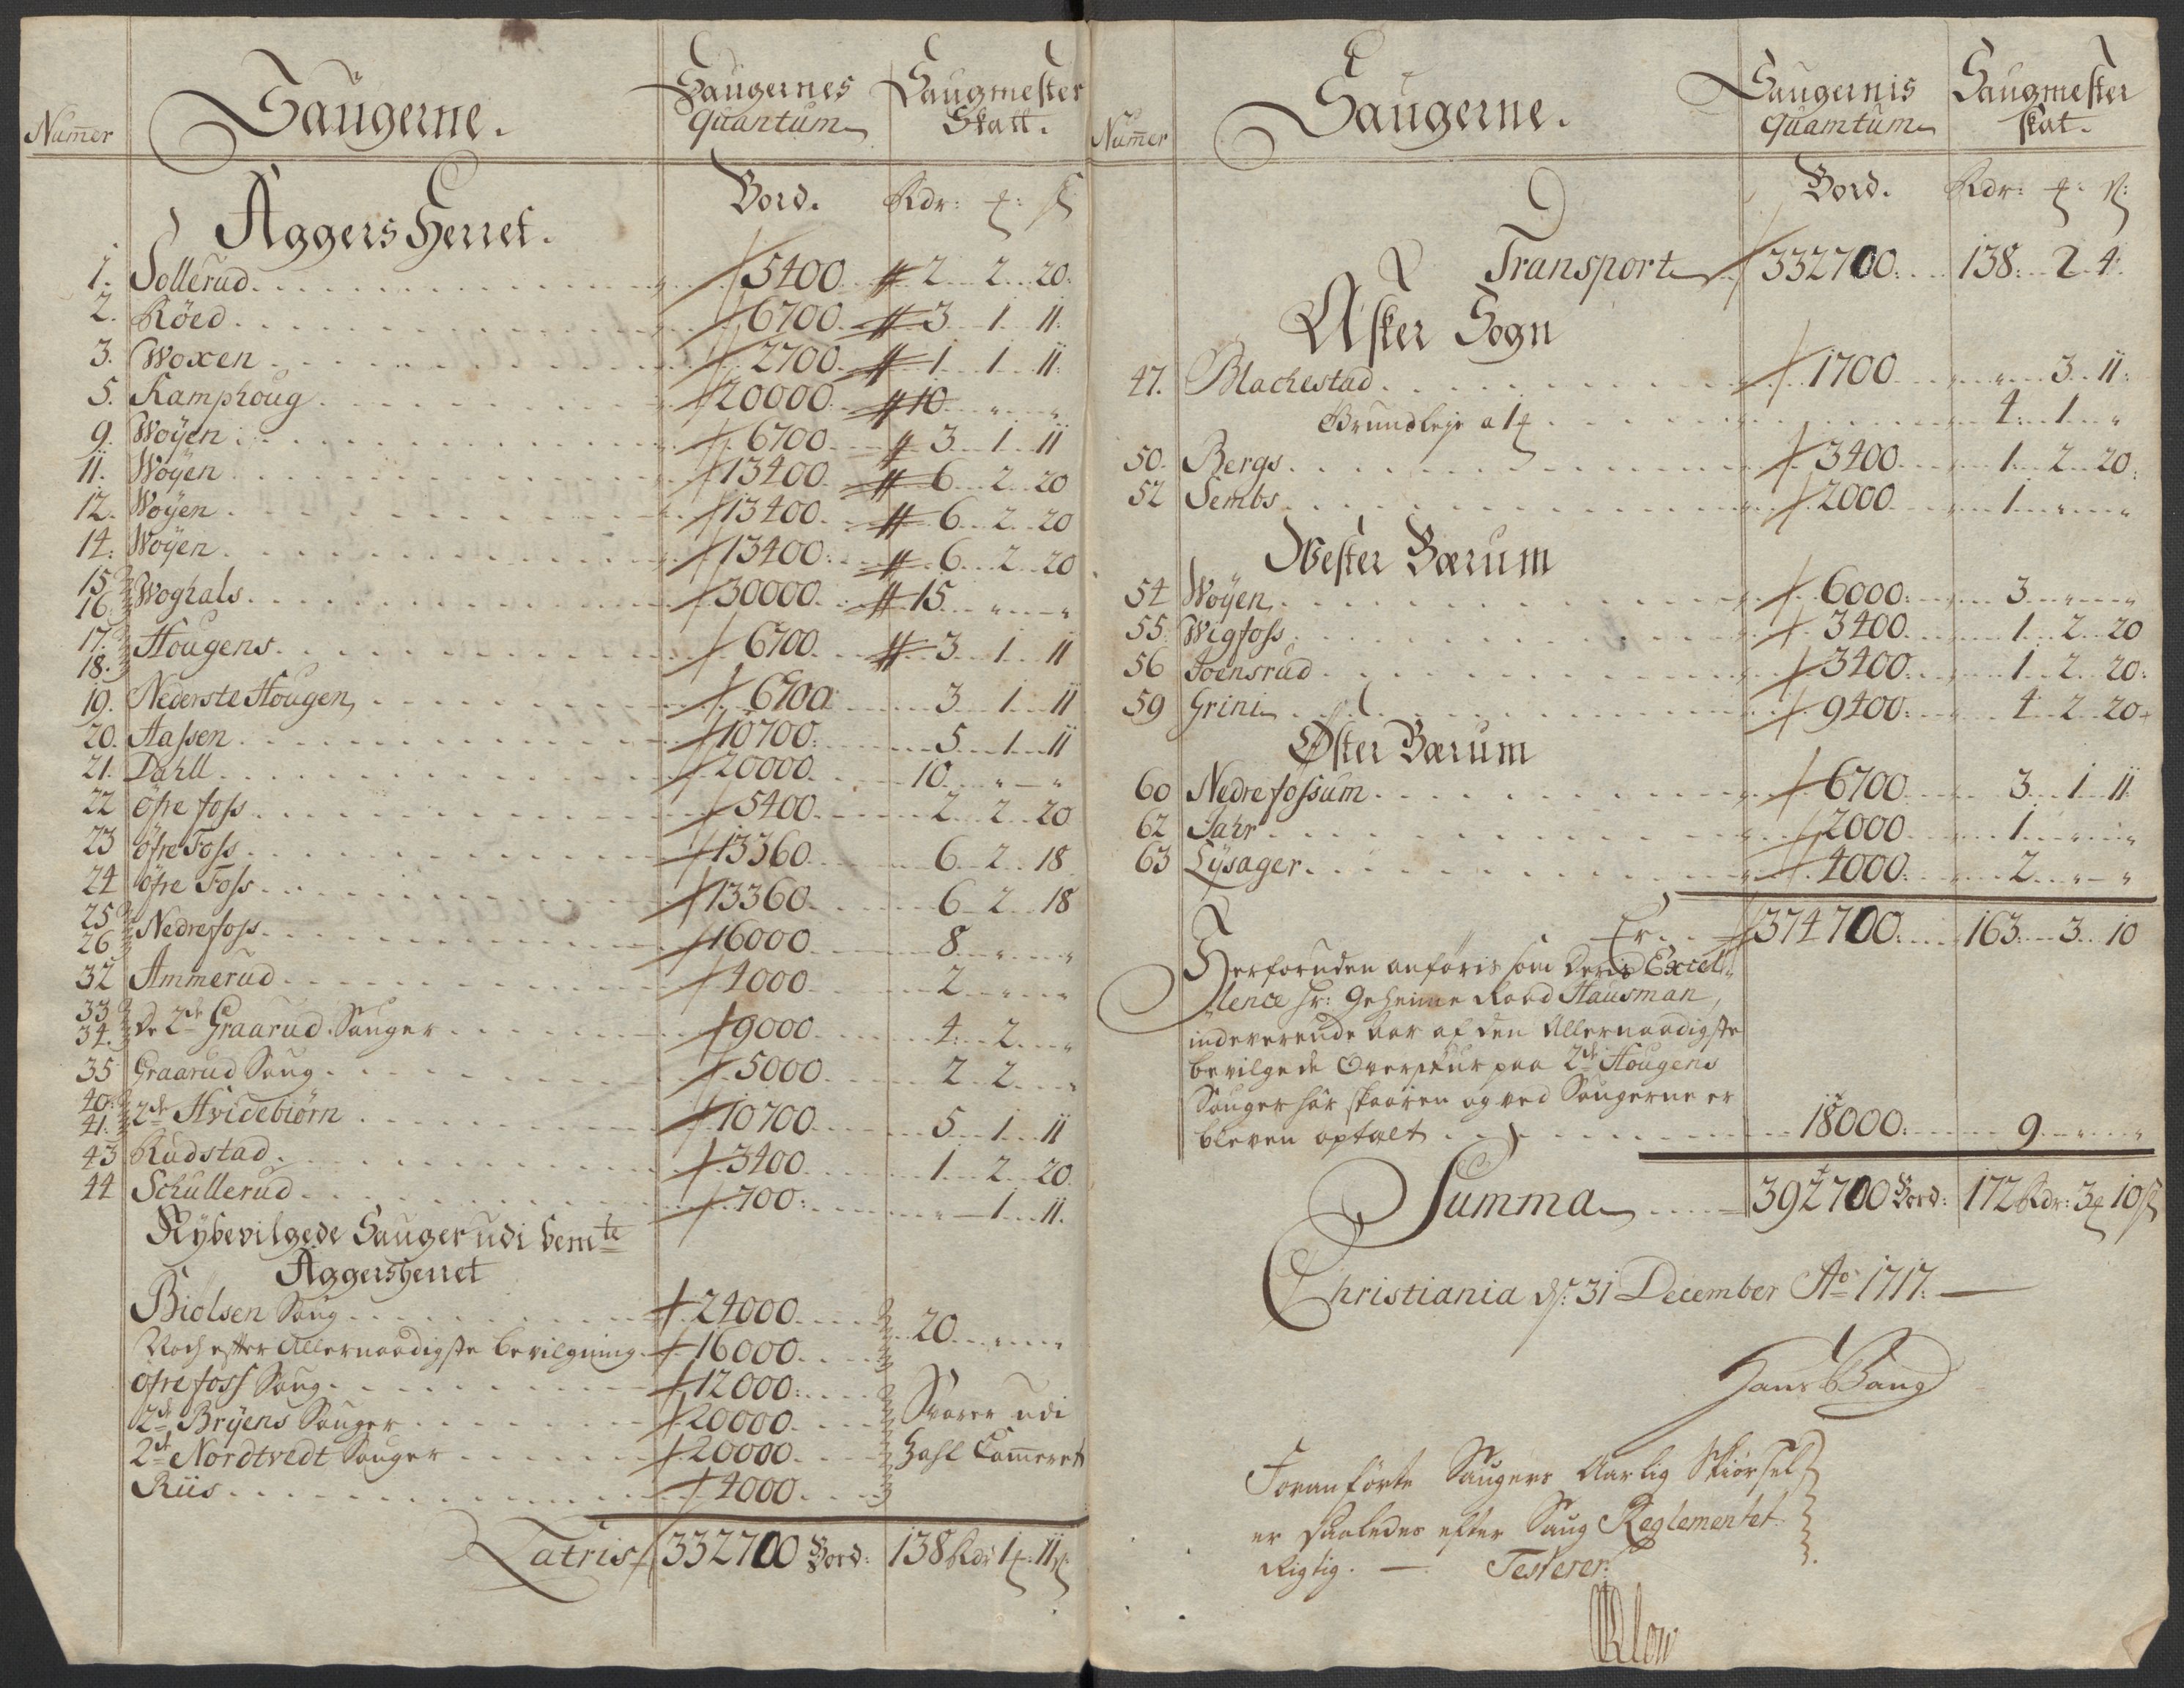 Num̅er Saugerne. Saugernes quantum Saugmester Skatt.
Aggers Herret. Bord. Rdr:
1. Sollerud 5400 2 2 20
2. Röed 6700 3 1 11
3. Woxen 2700 1 1 11
5. Kamphoug 20000 10 " "
9. Woÿen 6700 3 1 11
11. Woÿen 13400 6 2 20
12. Woÿen 13400 6 2 20
14. Woÿen 13400 6 2 20
15 16 Woghals 30000 15 " "
17. 18. Hougens 6700 3 1 11
19. Nederste Hougen 6700 3 1 11
20. Aassen 10700 5 1 11
21. Dahll 20000 10 " "
22 öfre foss 5400 2 2 20
23 öfre Foss 13360 6 2 18
24 öfre Foss 13360 6 2 18
25 26 Nedrefoss 16000 8 " "
32 Ammerud 4000 2 " "
33 34. De 2de Graarud Sauger 9000 4 2 "
35 Graarud Saug 5000 2 2 "
40: 41. 2de Hvidebiörn 10700 5 1 11
43 Rudstad 3400 1 2 20
44 Schullerud 700: " 1 11.
Nÿbevilgede Sauger udi bemte
Aggersherret
Biölsen Saug 24000
Noch efter Allernaadigste bevilgning 16000 20 " "
öfre foss Saug 12000:
2de Brÿens Sauger 20000 Svarer udi
2de Nordtvedt Sauger 20000 Zahl Cam̅eret
Riis 4000
Latris 332700 Bord: 138 Rdr 1 11
Num̅er Saugerne. Saugernis quamtum Saugmester skat.
Bord. Rdr:
Transport 332700: 138: 2 4
Asker Sogn
47. Blachestad 1700 " 3 11:
Grundleje a 1 4: 1 "
50. Bergs 3400 1 2 20:
52 Sembs 2000 1 " "
Wester Bærum
54 Woÿen 6000: 3 " "
55 Wigfoss 3400 1 2 20
56 Joensrud 3400 1 2 20:
59 Grini 9400: 4 2 20
Øster Bærum
60 Nedrefossum 6700 3 1 11
62 Jahr 2000 1 " "
63 Lÿsager 4000: 2 " "
Er 374700: 163 3 10
Herforuden anföris som Deris Excel-
lence Hr: Geheime Raad Hausman,
indeverende Aar af den Allernaadigste
bevilgede Overskur paa 2de Hougens
Sauger har skaaren og ved Saugerne er
bleven optalt 18000: 9 " "
Summa 392700 Bord: 172 Rdr: 3 10
Christiania d: 31 December Ao 1717.
Hans Bang
Foranförte Saugers Aarlig Skiörsel
er saaledes efter Saug Reglementet
Rigtig. — Testerer